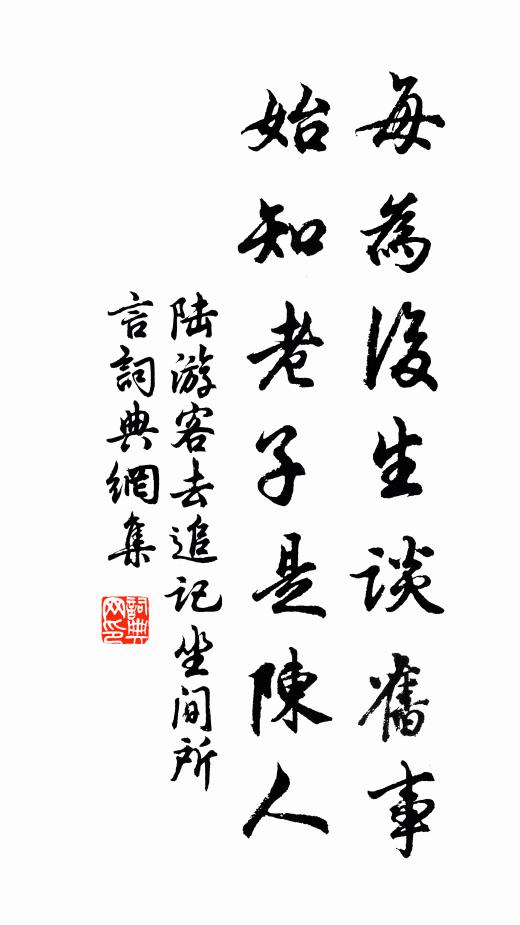 每為後生談舊事
始知老子是陳人
陸游客去追記坐間所
言詞典網集
詞典
网印